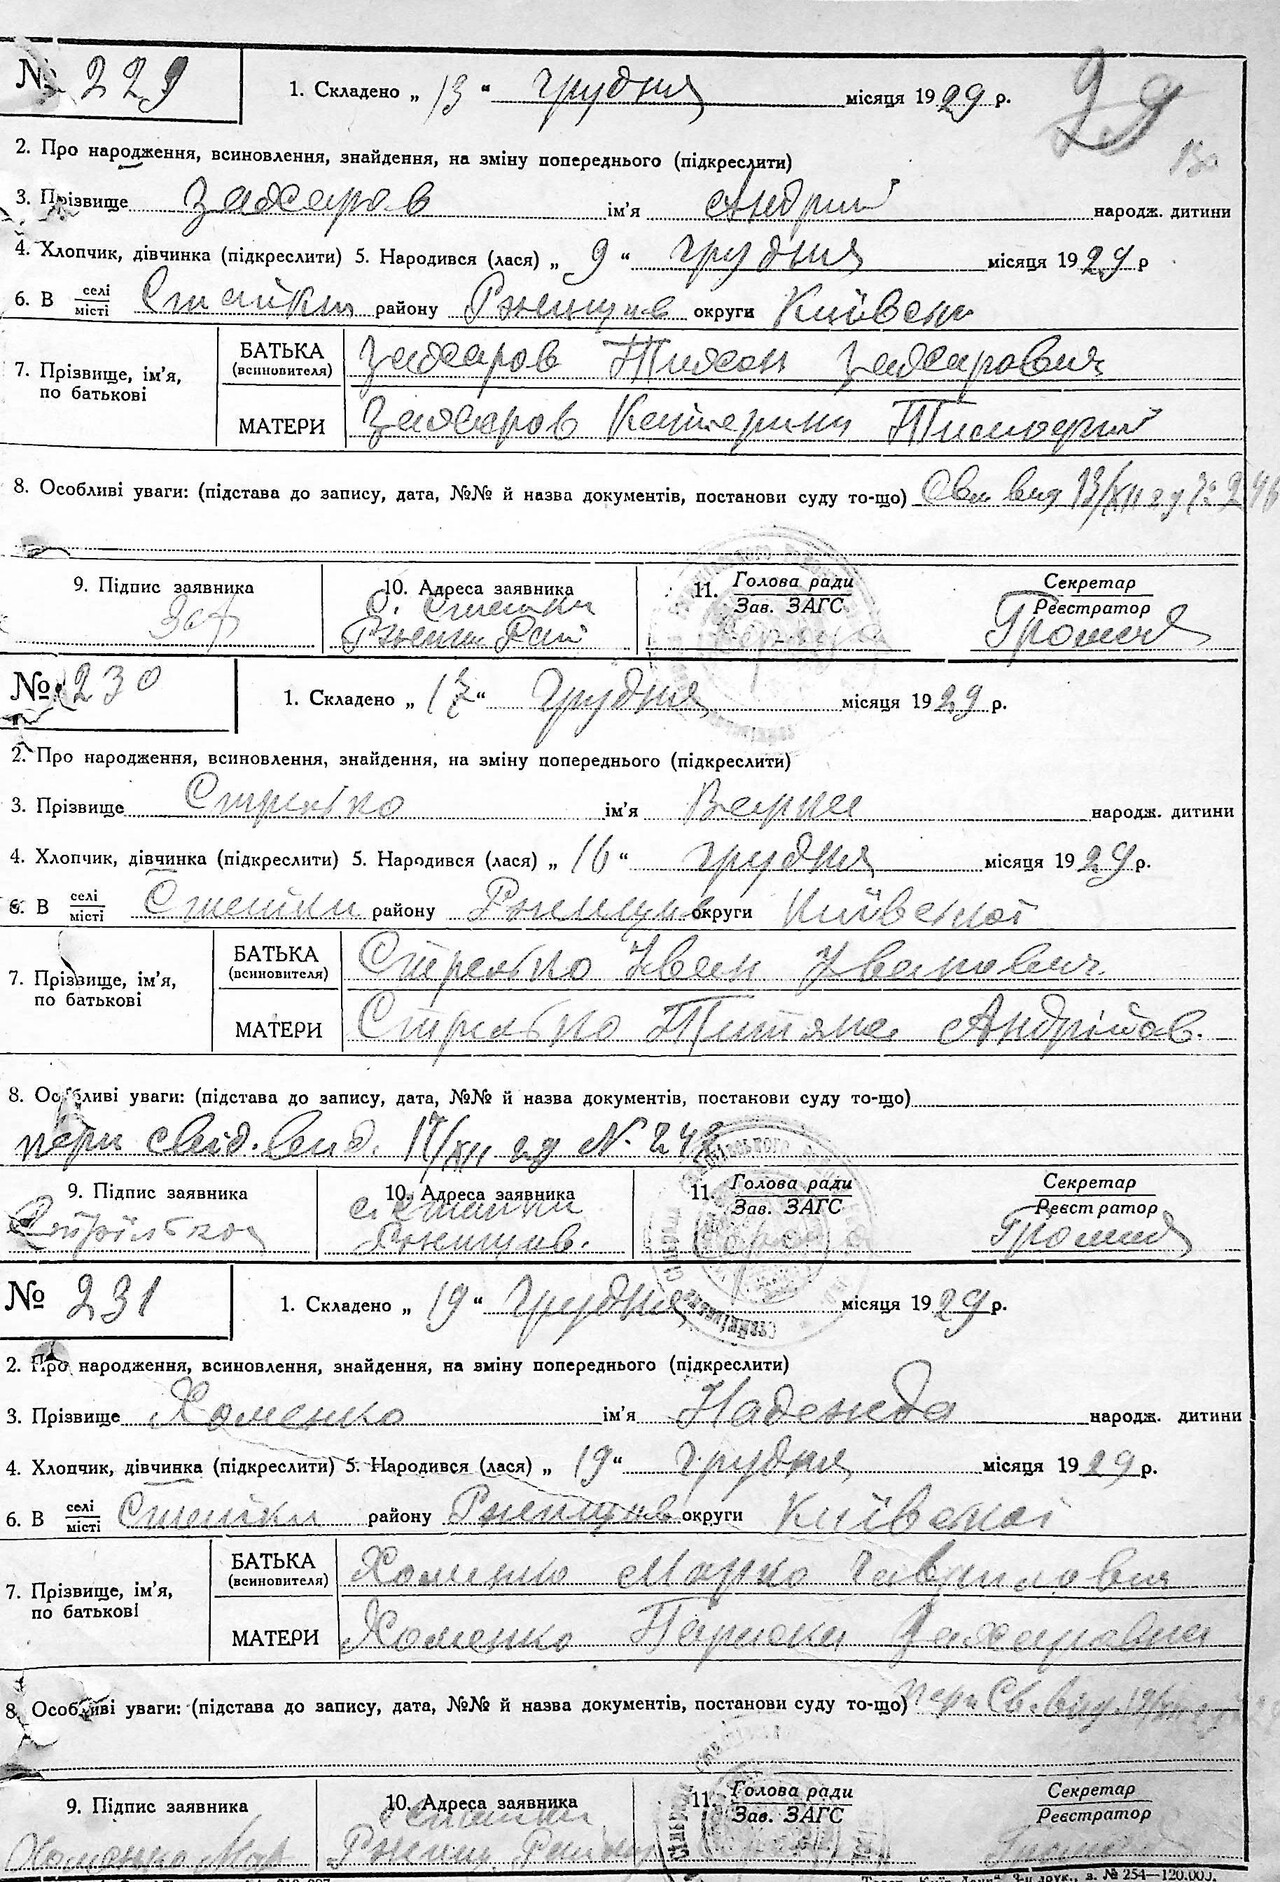 № 229
1. Складено „ 13 “ грудня місяця 1929 р.
29
2. Про народження, всиновлення, знайдення, на зміну попереднього (підкреслити)
3. Прізвище Захаров ім'я Андрий народж. дитини
4. Хлопчик, дівчинка (підкреслити) 5. Народився (лася) „ 9 “ грудня місяця 1929 р
6. В селі місті Стайки району Ржищив округи Київськ
7. Прізвище, ім'я, по батькові
БАТЬКА (всиновителя) Захаров Тихон Захарович
МАТЕРИ Захаров Катерина Тимофий
8. Особливі уваги: (підстава до запису, дата, №№ й назва документів, постанови суду то-що) вид 13/XII
9. Підпис заявника
10. Адреса заявника
11. Голова ради Зав. ЗАГС
Секретар Реєстратор
с. Стайки
Ржищ. Рай
№ 230
1. Складено „ 17 “ грудня місяця 1929 р.
2. Про народження, всиновлення, знайдення, на зміну попереднього (підкреслити)
3. Прізвище Стрелько ім'я Варка народж. дитини
4. Хлопчик, дівчинка (підкреслити) 5. Народився (лася) „ 16 “ грудня місяця 1929 р.
6. В селі місті Стайки району Ржищив округи Київської
7. Прізвище, ім'я, по батькові
БАТЬКА (всиновителя) Стрелько Иван Иванович
МАТЕРИ Стрелько Титяна Андріїов.
8. Особливі уваги: (підстава до запису, дата, №№ й назва документів, постанови суду то-що)
перв свід. вид. 17/XII 29 № 247
9. Підпис заявника
10. Адреса заявника
11. Голова ради Зав. ЗАГС
Секретар Реєстратор
Стрілько
с. Стайки
Ржищив.
№ 231
1. Складено „ 19 “ грудня місяця 1929 р.
2. Про народження, всиновлення, знайдення, на зміну попереднього (підкреслити)
3. Прізвище Хоменко ім'я Надежда народж. дитини
4. Хлопчик, дівчинка (підкреслити) 5. Народився (лася) „ 19 “ грудня місяця 1929 р.
6. В селі місті Стайки району Ржищив округи Київської
7. Прізвище, ім'я, по батькові
БАТЬКА (всиновителя) Хоменко Марко Гаврилович
МАТЕРИ Хоменко Параска Захаровна
8. Особливі уваги: (підстава до запису, дата, №№ й назва документів, постанови суду то-що) перв Св. вид. 19/XII
9. Підпис заявника
10. Адреса заявника
11. Голова ради Зав. ЗАГС
Секретар Реєстратор
Хоменко Мар
Стайки
Ржищ. Району
3-н друк., з. № 254—120.000.